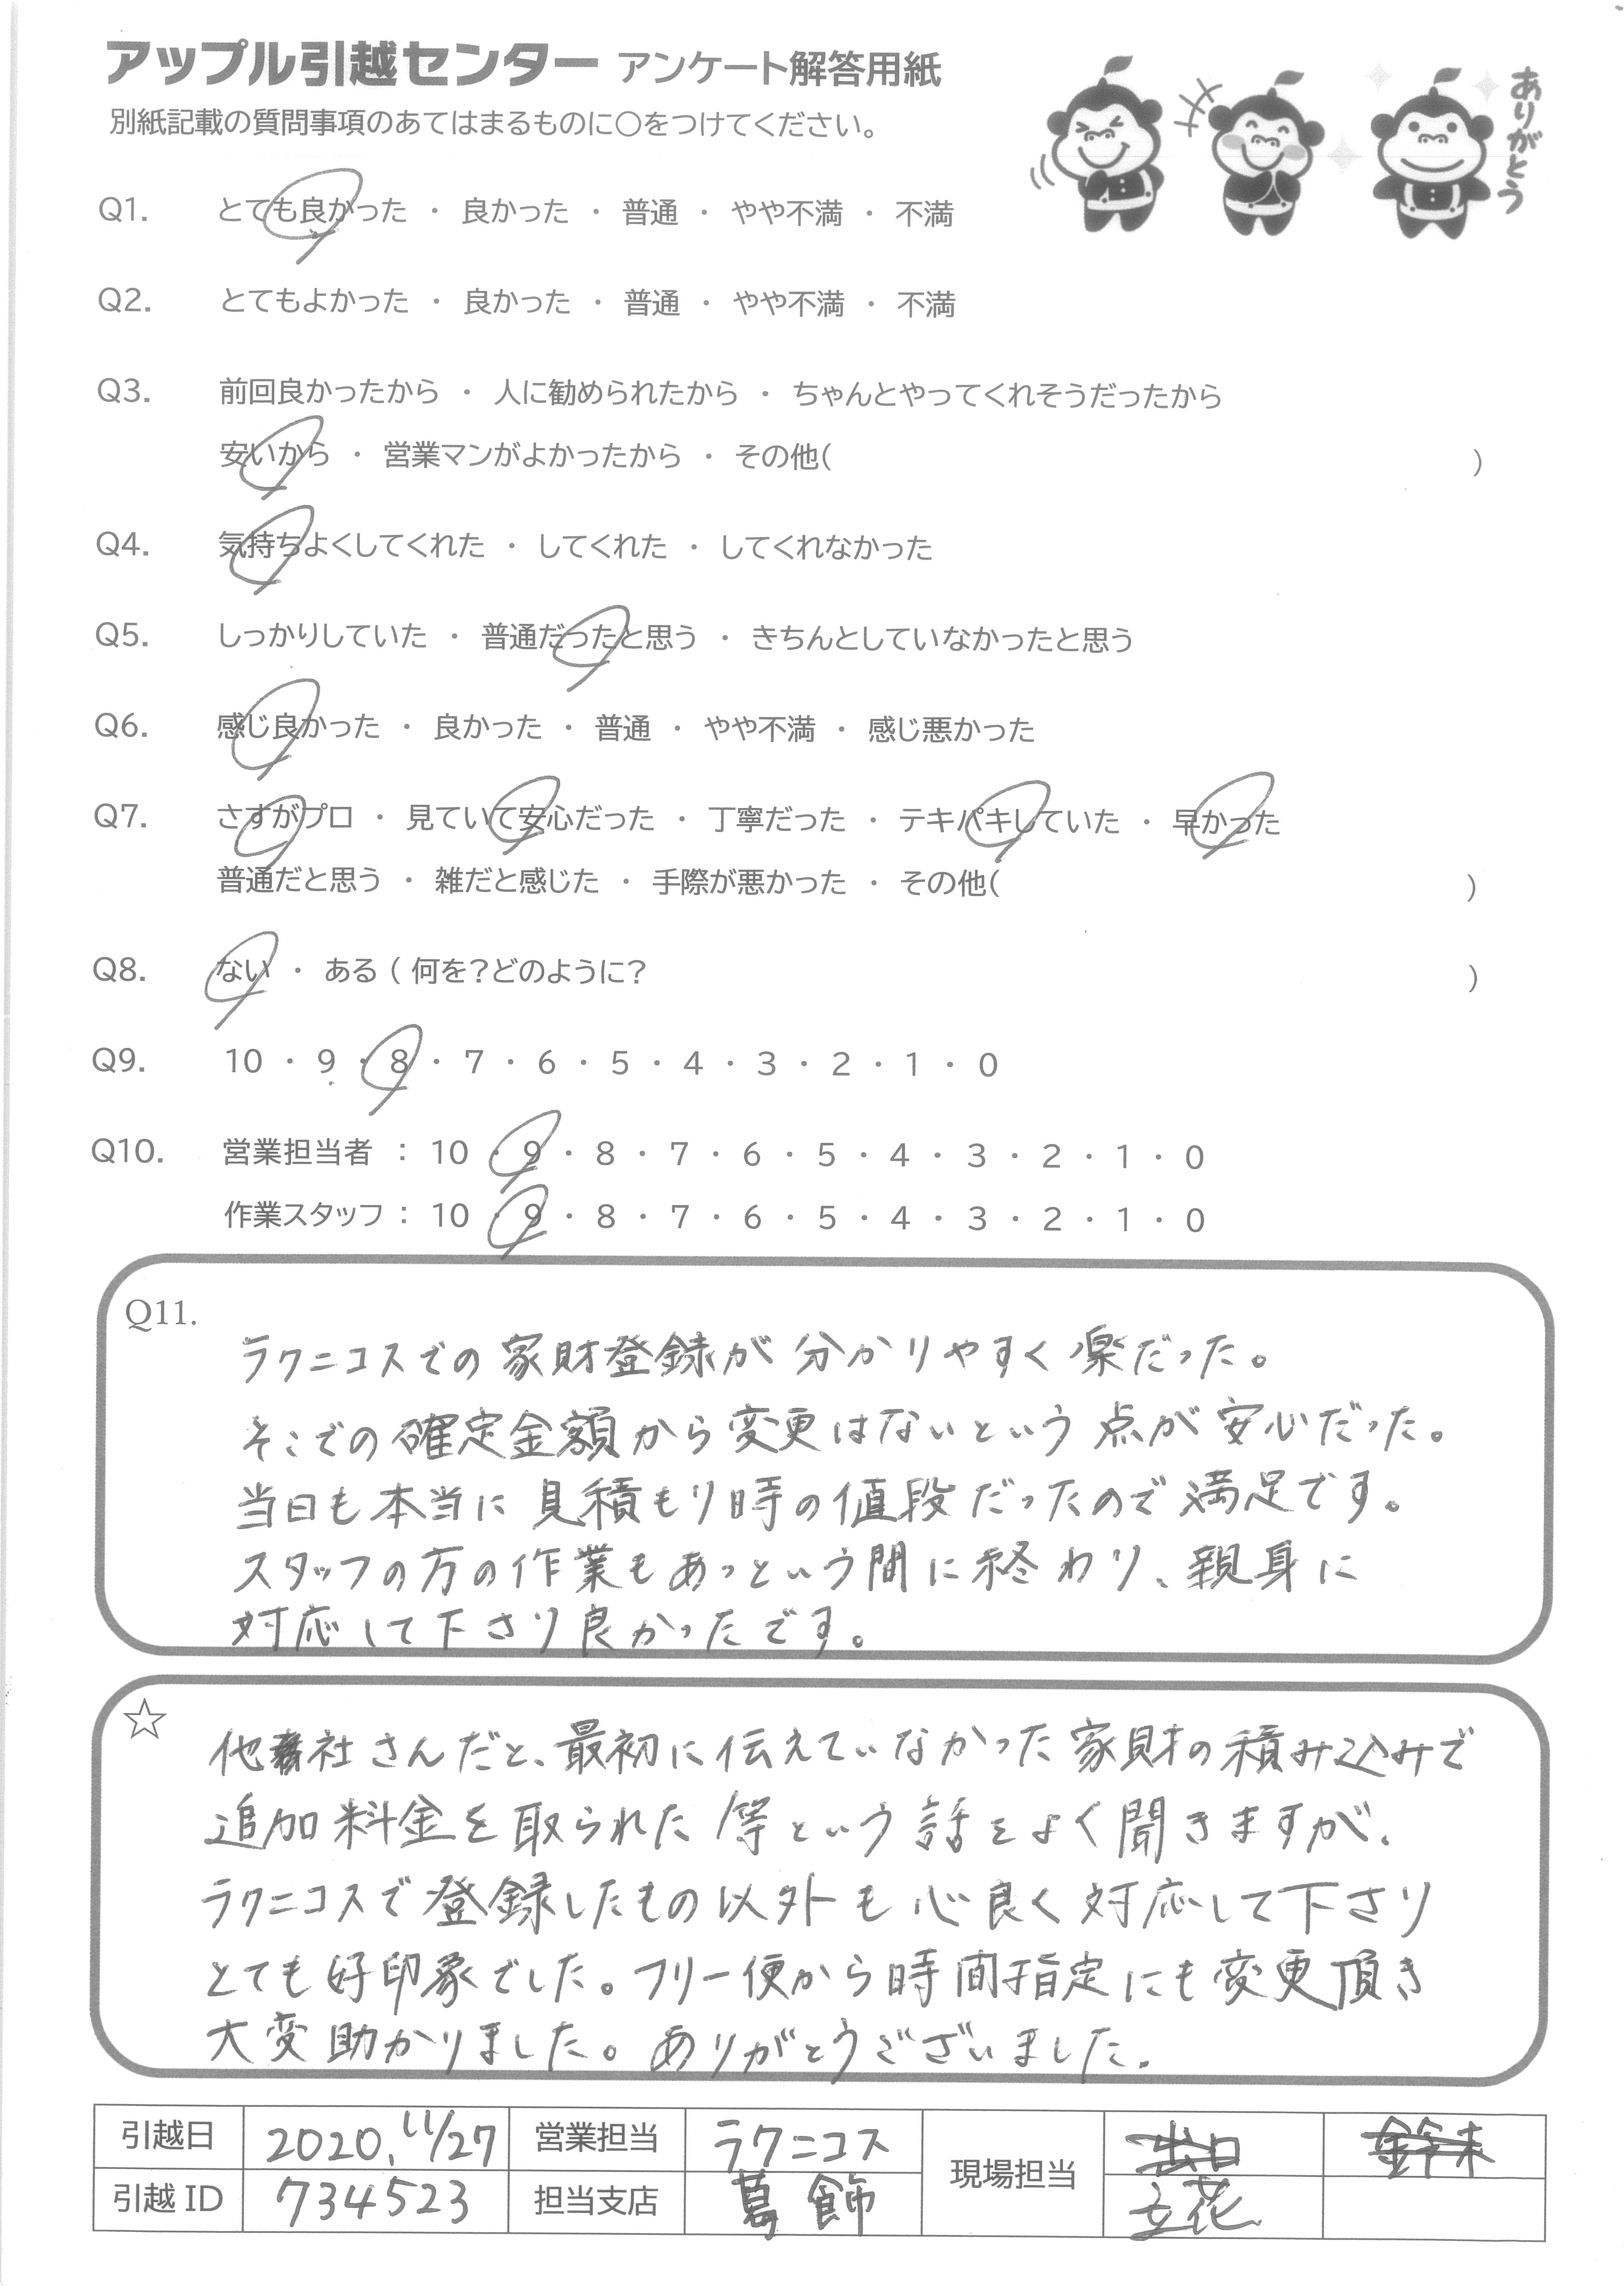 アップル引越センター アンケート解答用紙
別紙記載の質問事項のあてはまるものに○をつけてください。
ありがとう
Q1. とても良かった ・ 良かった ・ 普通 ・ やや不満 ・ 不満
Q2. とてもよかった ・ 良かった ・ 普通 ・ やや不満 ・ 不満
Q3. 前回良かったから ・ 人に勧められたから ・ ちゃんとやってくれそうだったから
安いから ・ 営業マンがよかったから ・ その他( )
Q4. 気持ちよくしてくれた ・ してくれた ・ してくれなかった
Q5. しっかりしていた ・ 普通だったと思う ・ きちんとしていなかったと思う
Q6. 感じ良かった ・ 良かった ・ 普通 ・ やや不満 ・ 感じ悪かった
Q7. さすがプロ ・ 見ていて安心だった ・ 丁寧だった ・ テキパキしていた ・ 早かった
普通だと思う ・ 雑だと感じた ・ 手際が悪かった ・ その他( )
Q8. ない ・ ある ( 何を？どのように？ )
Q9. 10 ・ 9 ・ 8 ・ 7 ・ 6 ・ 5 ・ 4 ・ 3 ・ 2 ・ 1 ・ 0
Q10. 営業担当者 : 10 ・ 9 ・ 8 ・ 7 ・ 6 ・ 5 ・ 4 ・ 3 ・ 2 ・ 1 ・ 0
作業スタッフ : 10 ・ 9 ・ 8 ・ 7 ・ 6 ・ 5 ・ 4 ・ 3 ・ 2 ・ 1 ・ 0
Q11.
ラクニコスでの家財登録が分かりやすく楽だった。
そこでの確定金額から変更はないという点が安心だった。
当日も本当に見積もり時の値段だったので満足です。
スタッフの方の作業もあっという間に終わり、親身に
対応して下さり良かったです。
☆
他社さんだと、最初に伝えていなかった家財の積み込みで
追加料金を取られた等という話をよく聞きますが、
ラクニコスで登録したもの以外も心良く対応して下さり
とても好印象でした。フリー便から時間指定にも変更頂き
大変助かりました。ありがとうございました.
引越日 2020. 11/27 営業担当 ラクニコス 現場担当 出口 鈴木
引越 ID 734523 担当支店 葛飾 立花